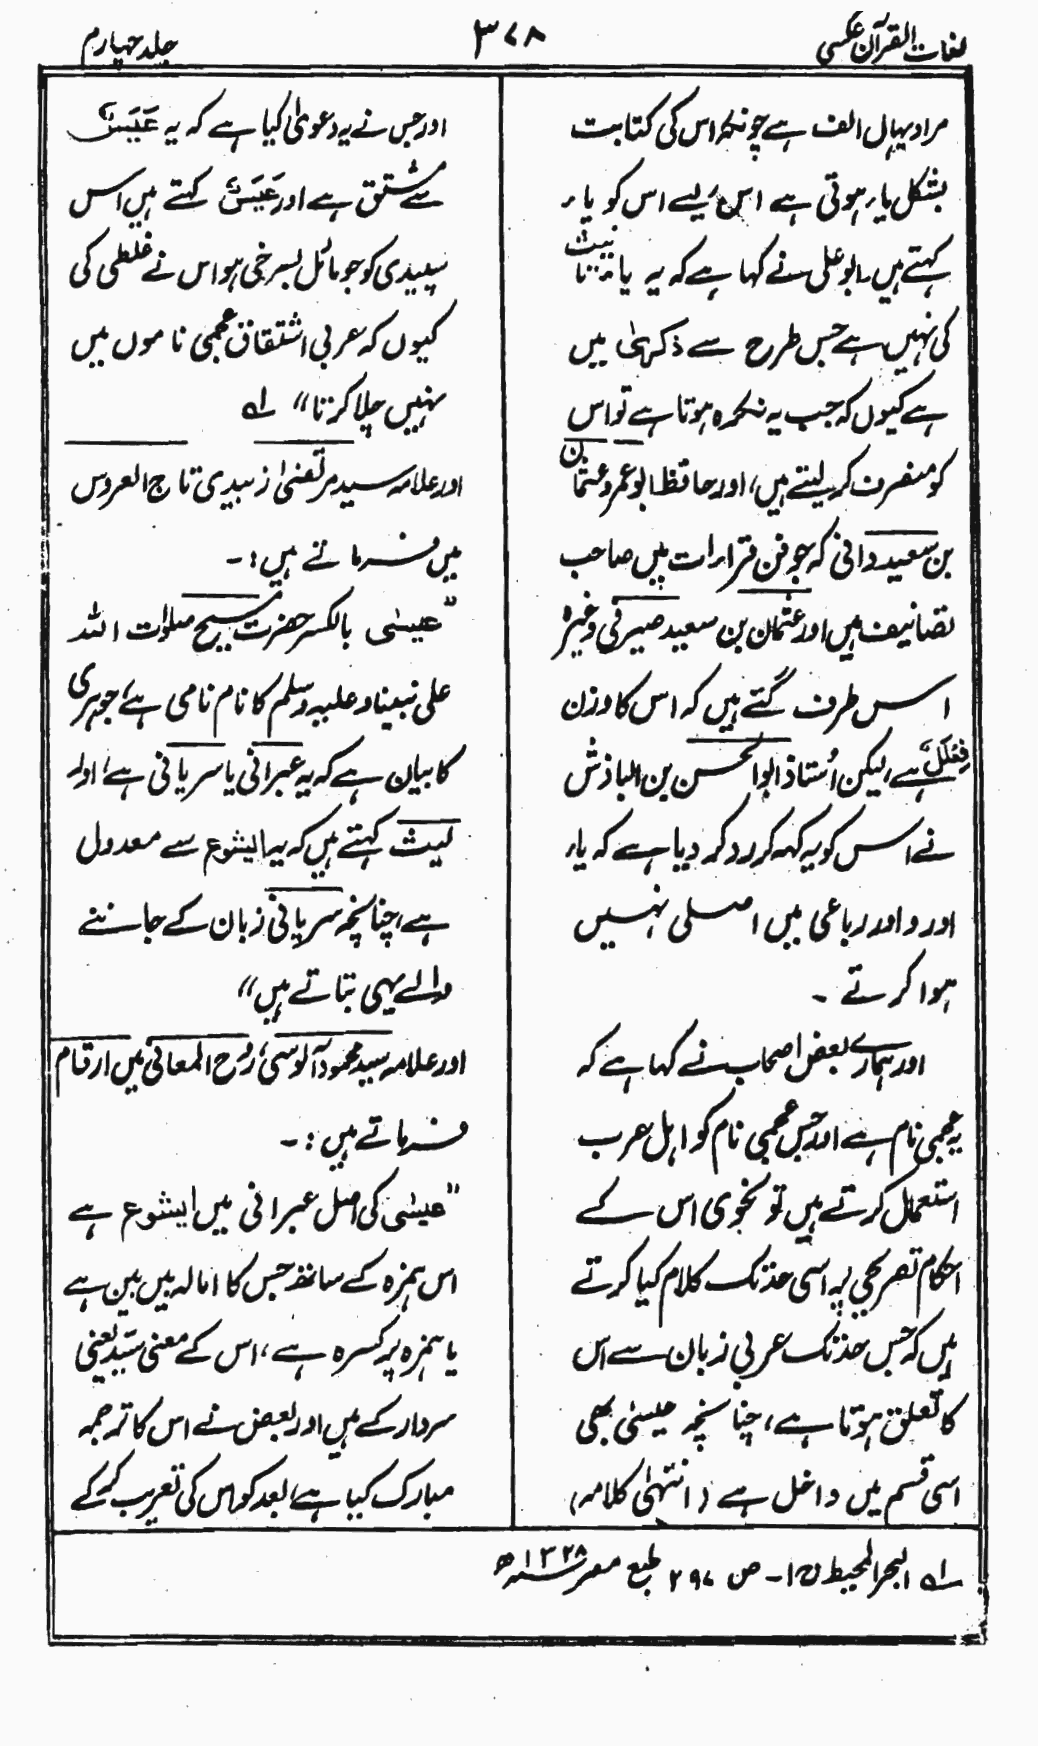 لغات القرآن عکسی
۳۷۸
جلد چہارم
مراد یہاں الف ہے چونکہ اس کی کتابت
بشکل یاء ہوتی ہے اس لیے اس کو یاء
کہتے ہیں۔ ابو علی نے کہا ہے کہ یہ یاء تانیث
کی نہیں ہے جس طرح سے ذکریٰ میں
ہے کیوں کہ جب یہ نکرہ ہوتا ہے تو اس
کو منصرف کر لیتے ہیں، اور حافظ ابو عمرو عثمان
بن سعید دانی کہ جو فن قراءات میں صاحب
تصانیف ہیں اور عثمان بن سعید صیرفی وغیرہ
اس طرف گئے ہیں کہ اس کا وزن
فِعْلَلٌ ہے، لیکن اُستاذ ابوالحسن بن الباذش
نے اس کو یہ کہہ کر رد کر دیا ہے کہ یاء
اور واو رباعی میں اصلی نہیں
ہوا کرتے ۔
اور ہمارے بعض اصحاب نے کہا ہے کہ
یہ عجمی نام ہے اور جس عجمی نام کو اہل عرب
استعمال کرتے ہیں تو نحوی اس کے
احکام تصریحی پہ اسی حد تک کلام کیا کرتے
ہیں کہ جس حد تک عربی زبان سے اس
کا تعلق ہوتا ہے، چنانچہ عیسیٰ بھی
اسی قسم میں داخل ہے (انتہیٰ کلامہ)
اور جس نے یہ دعویٰ کیا ہے کہ یہ عَیَسٌ
سے مشتق ہے اور عَیَسٌ کہتے ہیں اس
سپیدی کو جو مائل بسرخی ہو اس نے غلطی کی
کیوں کہ عربی اشتقاق عجمی ناموں میں
نہیں چلا کرتا" لہ
اور علامہ سید مرتضیٰ زبیدی تاج العروس
میں فرماتے ہیں :۔
"عیسٰی بالکسر حضرت مسیح صلوٰت اللہ
علی نبینا و علیہ وسلم کا نام نامی ہے، جوہری
کا بیان ہے کہ یہ عبرانی یا سریانی ہے، اور
لیث کہتے ہیں کہ یہ ایشوع سے معدول
ہے، چنانچہ سریانی زبان کے جاننے
والے یہی بتاتے ہیں"
اور علامہ سید محمود آلوسی، روح المعانی میں ارقام
فرماتے ہیں :۔
"عیسٰی کی اصل عبرانی میں ایشوع ہے
اس ہمزہ کے ساتھ جس کا امالہ بین بین ہے
یا ہمزہ پر کسرہ ہے، اس کے معنی سَیّد یعنی
سردار کے ہیں اور بعض نے اس کا ترجمہ
مبارک کیا ہے، بعد کو اس کی تعریب کر کے
لہ البحر المحیط ج ۱۔ ص ۲۹۷ طبع مصر ۱۳۲۸ھ